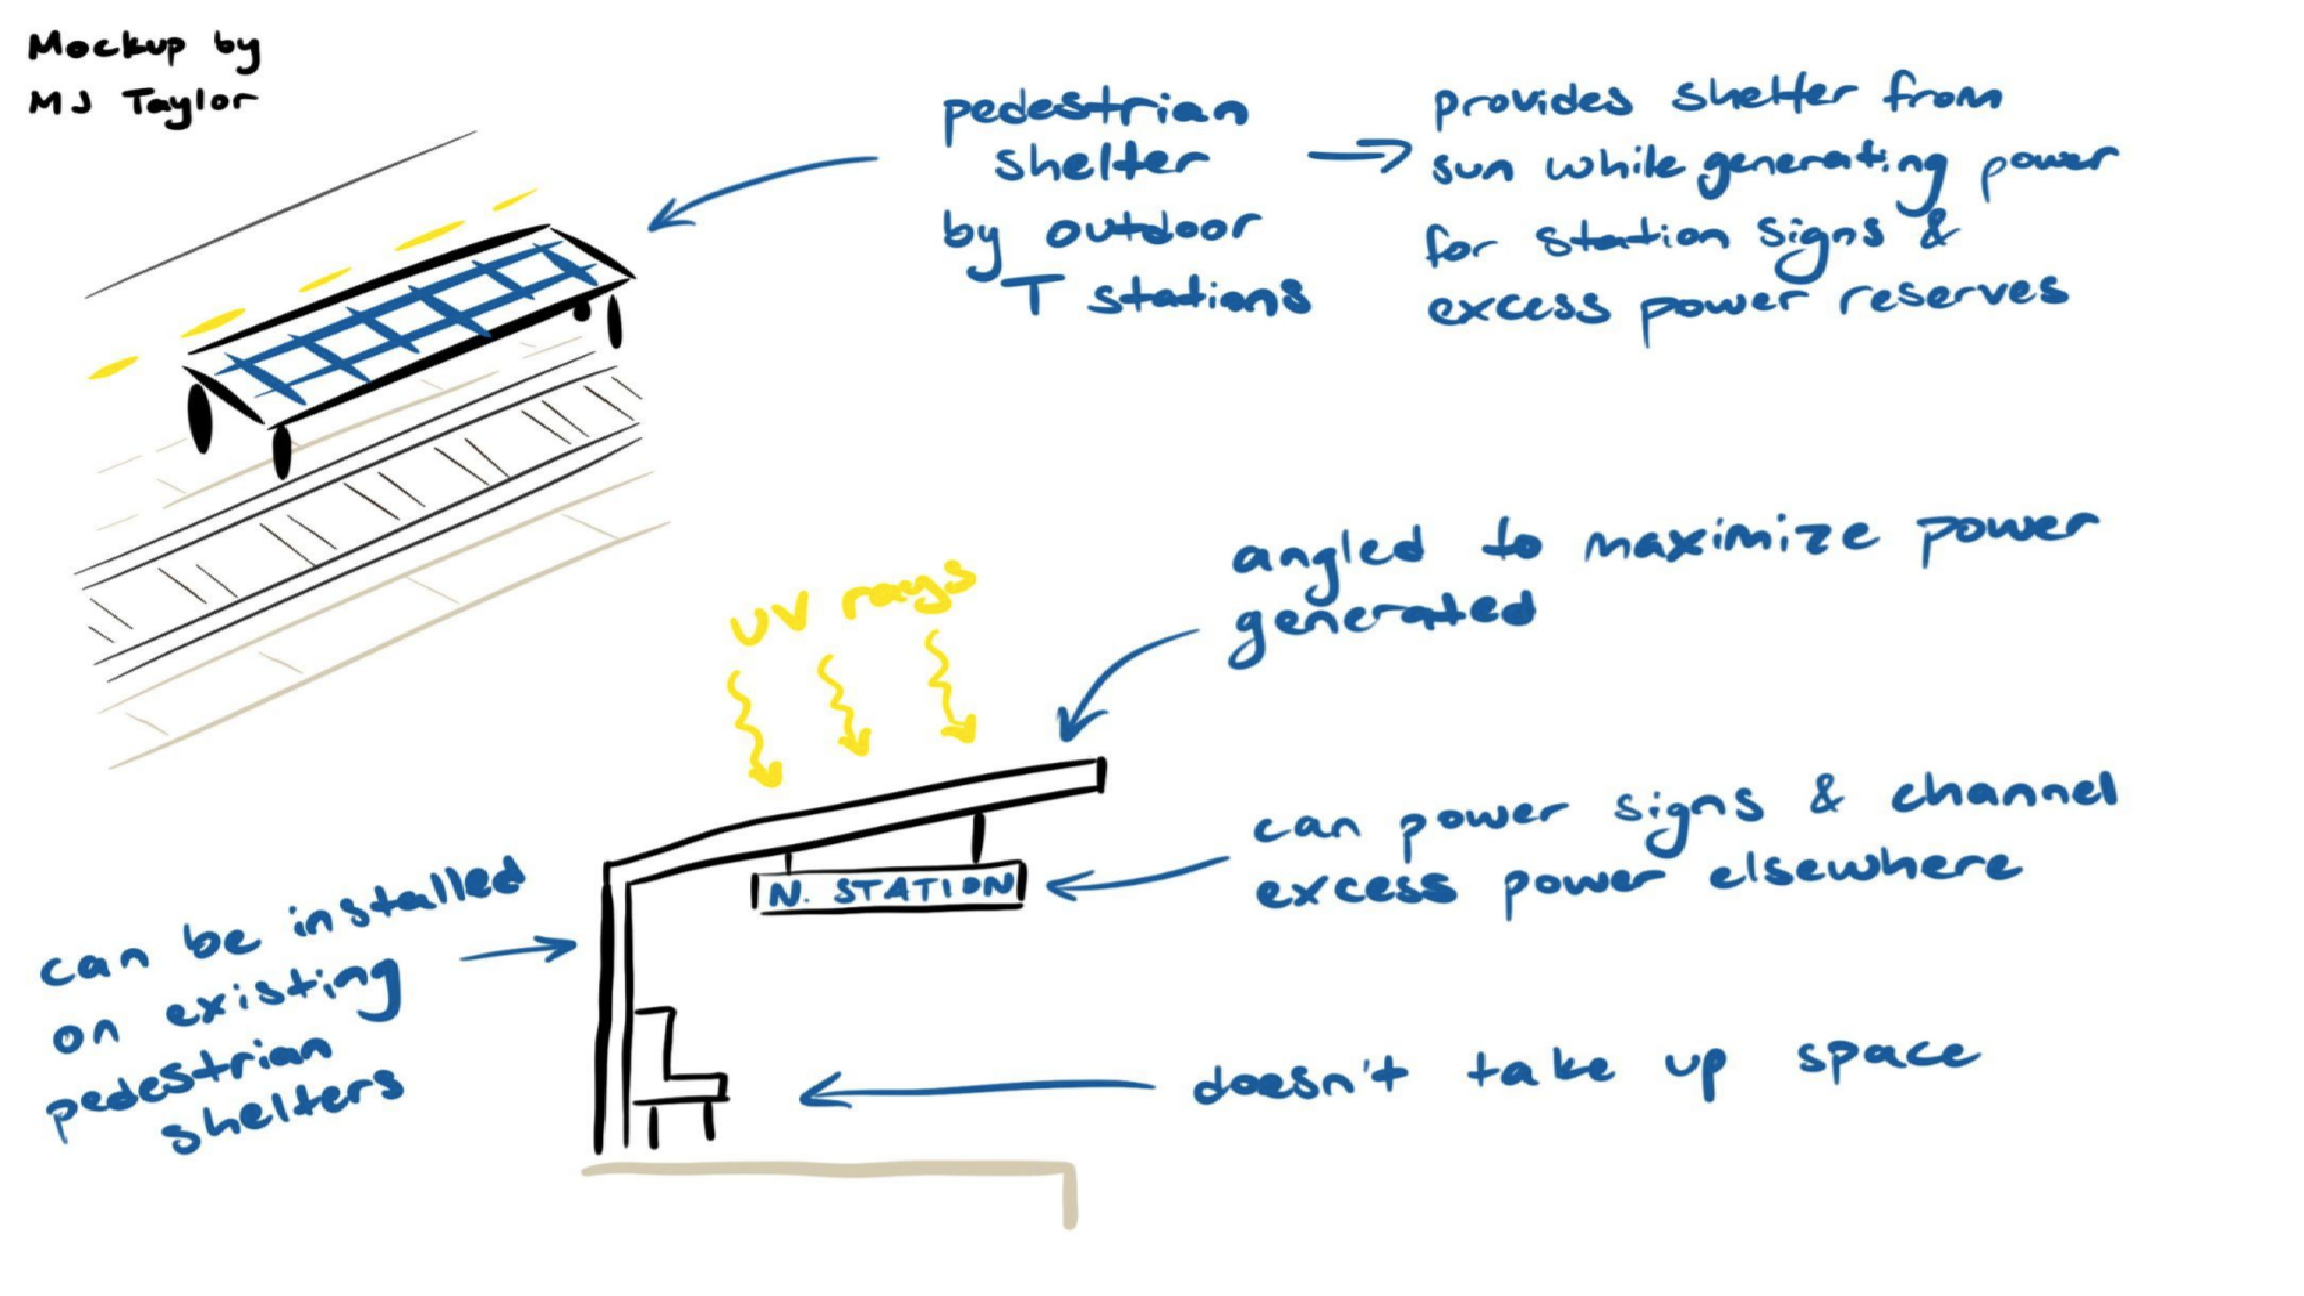 Mockup by
MJ Taylor
pedestrian
shelter
by outdoor
T stations
provides shelter from
sun while generating power
for station signs &
excess power reserves
angled to maximize power
generated
UV rays
can power signs & channel
excess power elsewhere
N. STATION
can be installed
on existing
pedestrian
shelters
doesn't take up space